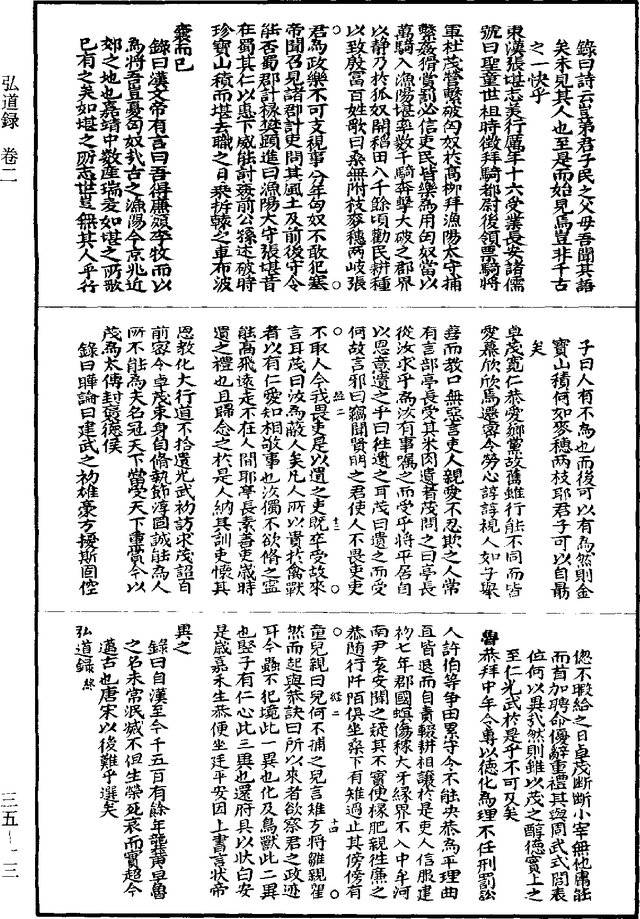 弘道録 卷二
三五-一三
錄曰詩云豈弟君子民之父母吾聞其語
矣未見其人也至是而始見焉豈非千古
之一快乎
東漢張堪志美行厲年十六受業長安諸儒
號曰聖童世祖時徵拜騎都尉後領票騎將
軍杜茂營繫破匈奴於高柳拜漁陽太守捕
繫姦猾賞罰必信吏民皆樂為用匈奴嘗以
萬騎入漁陽堪率數千騎奔擊大破之郡界
以靜乃於狐奴開稻田八千餘頃勸民耕種
以致殷富百姓歌曰桑無附枝麥穗兩岐張
君為政樂不可支視事八年匈奴不敢犯塞
帝聞召見諸郡計吏問其風土及前後守令
能否蜀郡計掾樊顯進曰漁陽太守張堪昔
在蜀其仁以惠下威能討姦前公孫述破時
珍寶山積而堪去職之日乘折轅之車布被
囊而已
錄曰漢文帝有言曰吾得廉頗李牧而以
為將吾豈憂匈奴哉古之漁陽今京兆近
郊之地也嘉靖中數産瑞麥如堪之所歌
已有之矣如堪之所志世豈無其人乎行
子曰人有不為也而後可以有為然則金
寶山積何如麥穗兩枝耶君子可以自勗
矣
卓茂寬仁恭愛鄉黨故舊雖行能不同而皆
愛慕欣欣焉遷密令勞心諄諄視人如子舉
善而教口無惡言吏人親愛不忍欺之人常
有言部亭長受其米肉遺者茂問之曰亭長
從汝求乎為汝有事囑之而受乎將平居自
以恩意遺之乎曰往遺之耳茂曰遺之而受
何故言邪曰竊聞賢明之君使人不畏吏吏
不取人今我畏吏是以遺之吏既卒受故來
言耳茂曰汝為敝人矣凡人所以貴於禽獸
者以有仁愛知相敬事也汝獨不欲脩之寧
能高飛遠走不在人間耶亭長素善吏歲時
遺之禮也且歸念之於是人納其訓吏懷其
恩教化大行道不拾遺光武初訪求茂詔曰
前密令卓茂束身自脩執節淳固誠能為人
所不能為夫名冠天下當受天下重賞今以
茂為太傅封褒德侯
錄曰曄論曰建武之初雄豪方擾斯固倥
傯不暇給之日卓茂斷斷小宰無他庸能
而首加聘命優辭重禮其與周武式閭表
位何以異哉然則雖以茂之醇德實上之
至仁光武於是乎不可及矣
魯恭拜中牟令專以德化為理不任刑罰訟
人許伯等爭田累守令不能決恭為平理曲
直皆退而自責輟耕相讓於是吏人信服建
初七年郡國螟傷稼犬牙緣界不入中牟河
南尹袁安聞之疑其不實使掾肥親往廉之
恭隨行阡陌俱坐桑下有雉過止其傍傍有
童兒親曰兒何不捕之兒言雉方將雛親瞿
然而起與恭訣曰所以來者欲察君之政迹
耳今蟲不犯境此一異也化及鳥獸此二異
也堅子有仁心此三異也還府具以狀白安
是歲嘉禾生恭便坐廷平安因上書言狀帝
異之
錄曰自漢至今千五百有餘年龔黃卓魯
之名未常泯滅不但生榮死哀而實超今
邁古也唐宋以後難乎選矣
弘道録 終